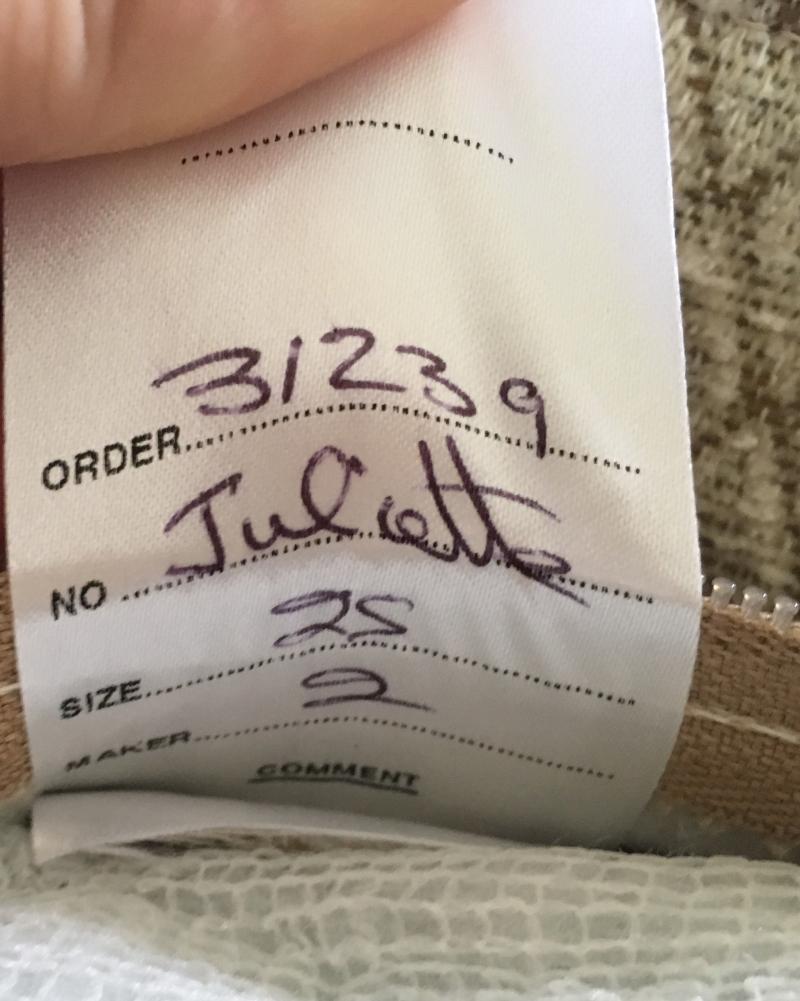 ORDER 31239
NO Juliette
SIZE 2S
MAKER 2
COMMENT